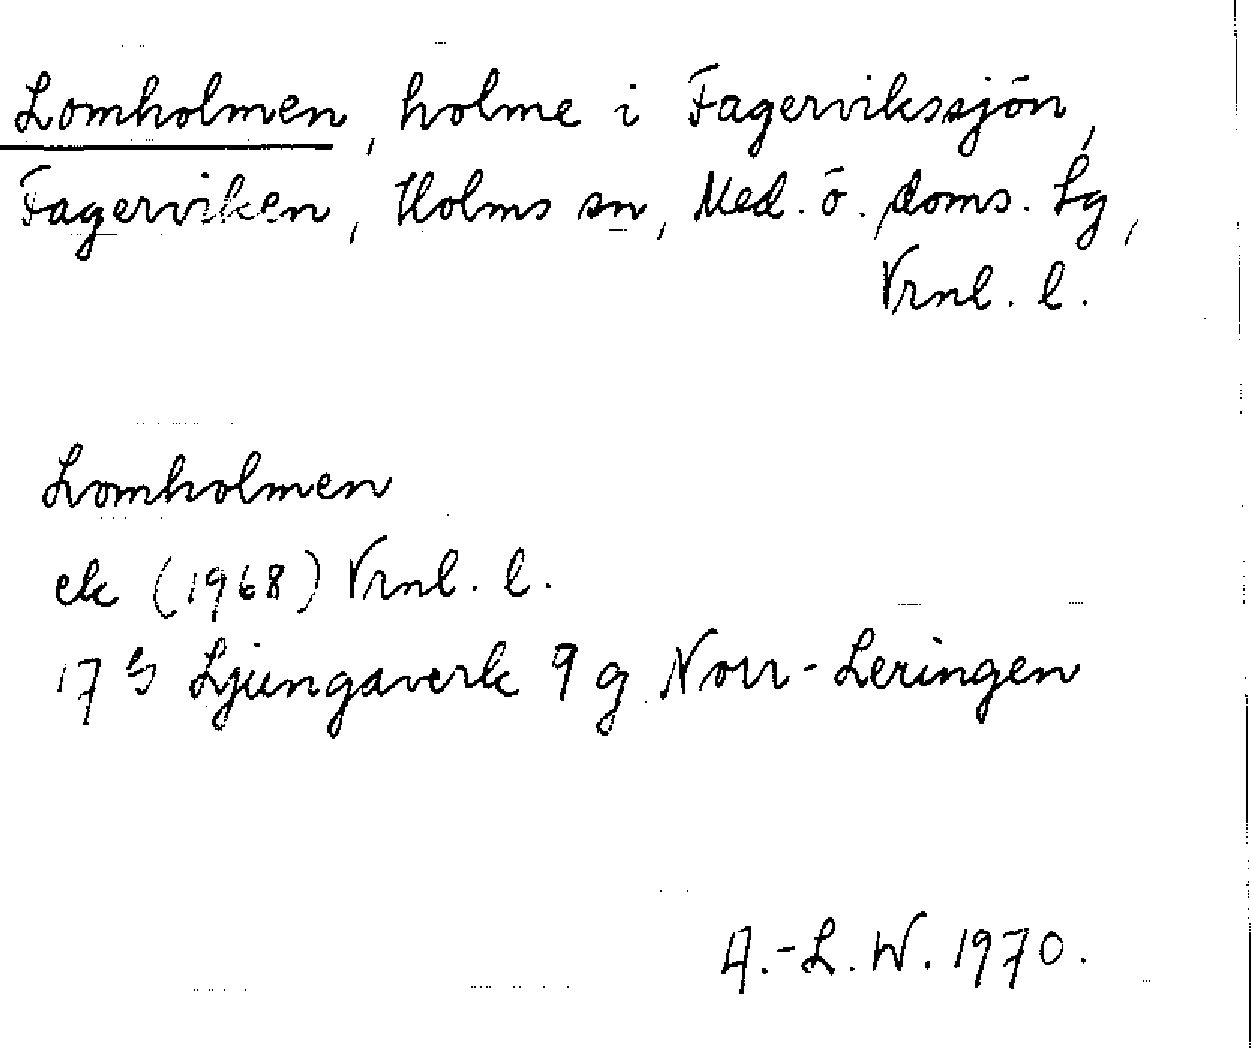 Lomholmen, holme i Fagervikssjön,
Fagerviken, Holms sn, Med. ö. doms. Lg,
Vrnl. l.
Lomholmen
ek (1968) Vrnl. l.
17 G Ljungaverk 9 g Norr-Leringen
A.-L. W. 1970.